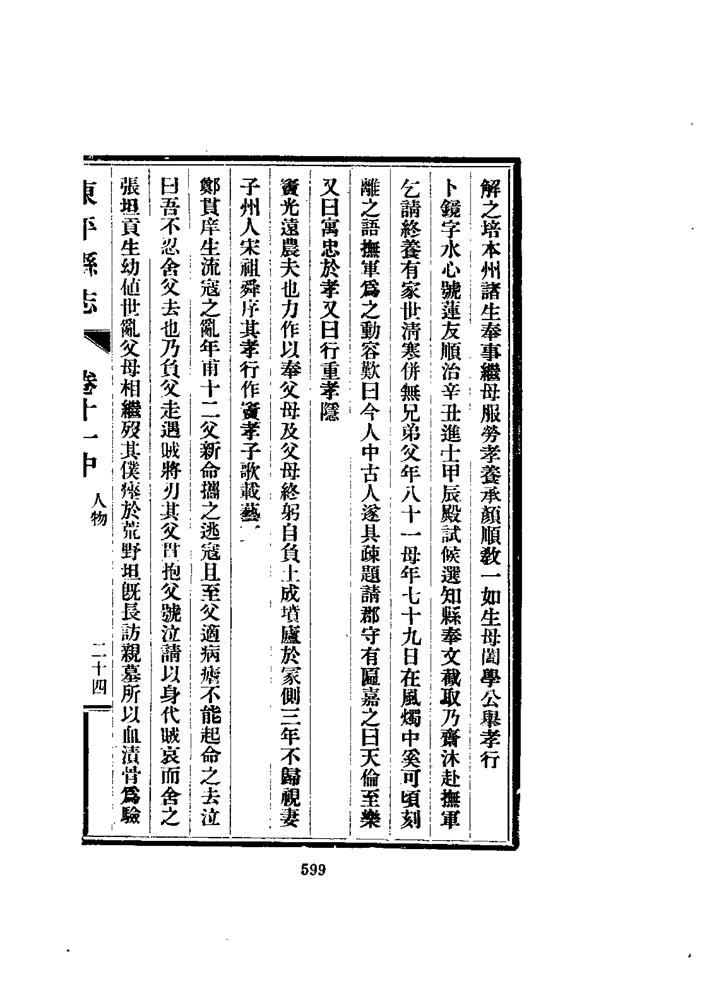 解之培本州諸生奉事繼母服勞孝養承顏順敎一如生母闔學公舉孝行
卜鏡字水心號蓮友順治辛丑進士甲辰殿試候選知縣奉文截取乃齋沐赴撫軍
乞請終養有家世淸寒併無兄弟父年八十一母年七十九日在風燭中奚可頃刻
離之語撫軍爲之動容歎曰今人中古人遂具疎題請郡守有匾嘉之曰天倫至樂
又曰寓忠於孝又曰行重孝隱
竇光遠農夫也力作以奉父母及父母終躬自負土成墳廬於冢側三年不歸視妻
子州人宋祖舜序其孝行作竇孝子歌載藝
鄭貫庠生流寇之亂年甫十二父新命攜之逃寇且至父適病瘧不能起命之去泣
曰吾不忍舍父去也乃負父走遇賊將刃其父貫抱父號泣請以身代賊哀而舍之
張坦貢生幼値世亂父母相繼歿其僕瘞於荒野坦旣長訪親墓所以血漬骨爲驗
東平縣志
卷十一中
人物
二十四
599